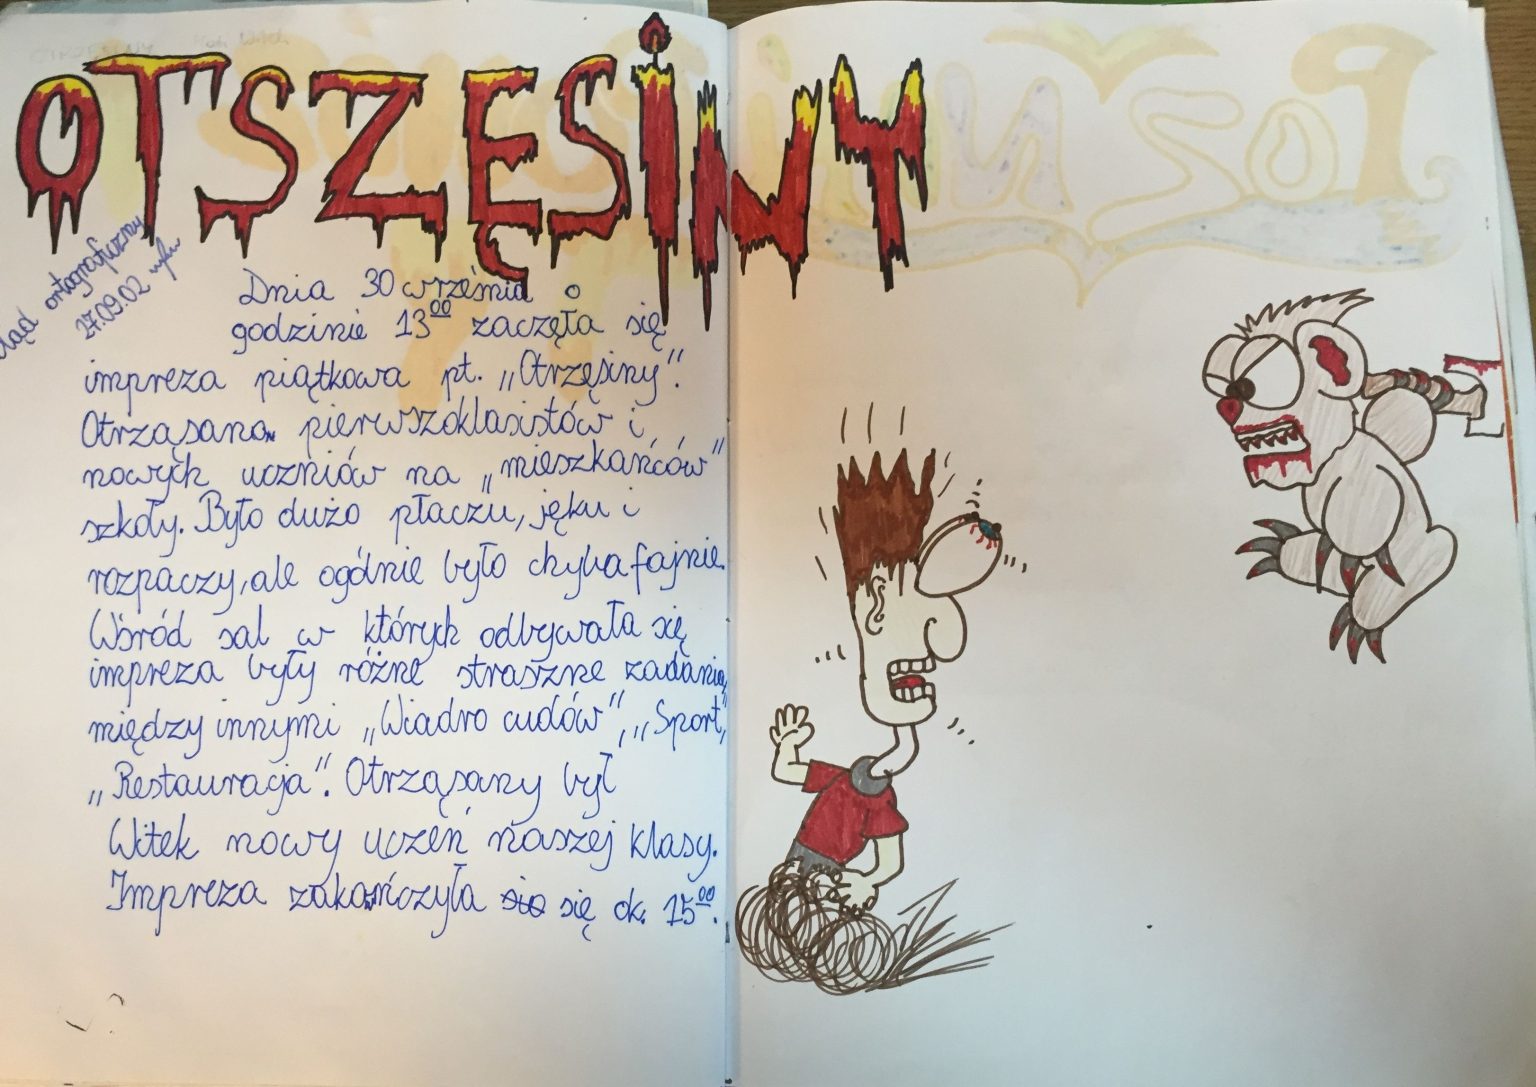 OTSZĘSINY
ortagraficzny
27.09.02
Dnia 30 września o
godzinie 13⁰⁰ zaczęła się
impreza piątkowa pt. „Otrzęsiny”.
Otrząsano pierwszoklasistów i
nowych uczniów na „mieszkańców”
szkoły. Było dużo płaczu, jęku i
rozpaczy, ale ogólnie było chyba fajnie.
Wśród sal w których odbywała się
impreza były różne straszne zadania,
między innymi „Wiadro cudów”, „Sport”,
„Restauracja”. Otrząsany był
Witek nowy uczeń naszej klasy.
Impreza zakończyła się ok. 15⁰⁰.